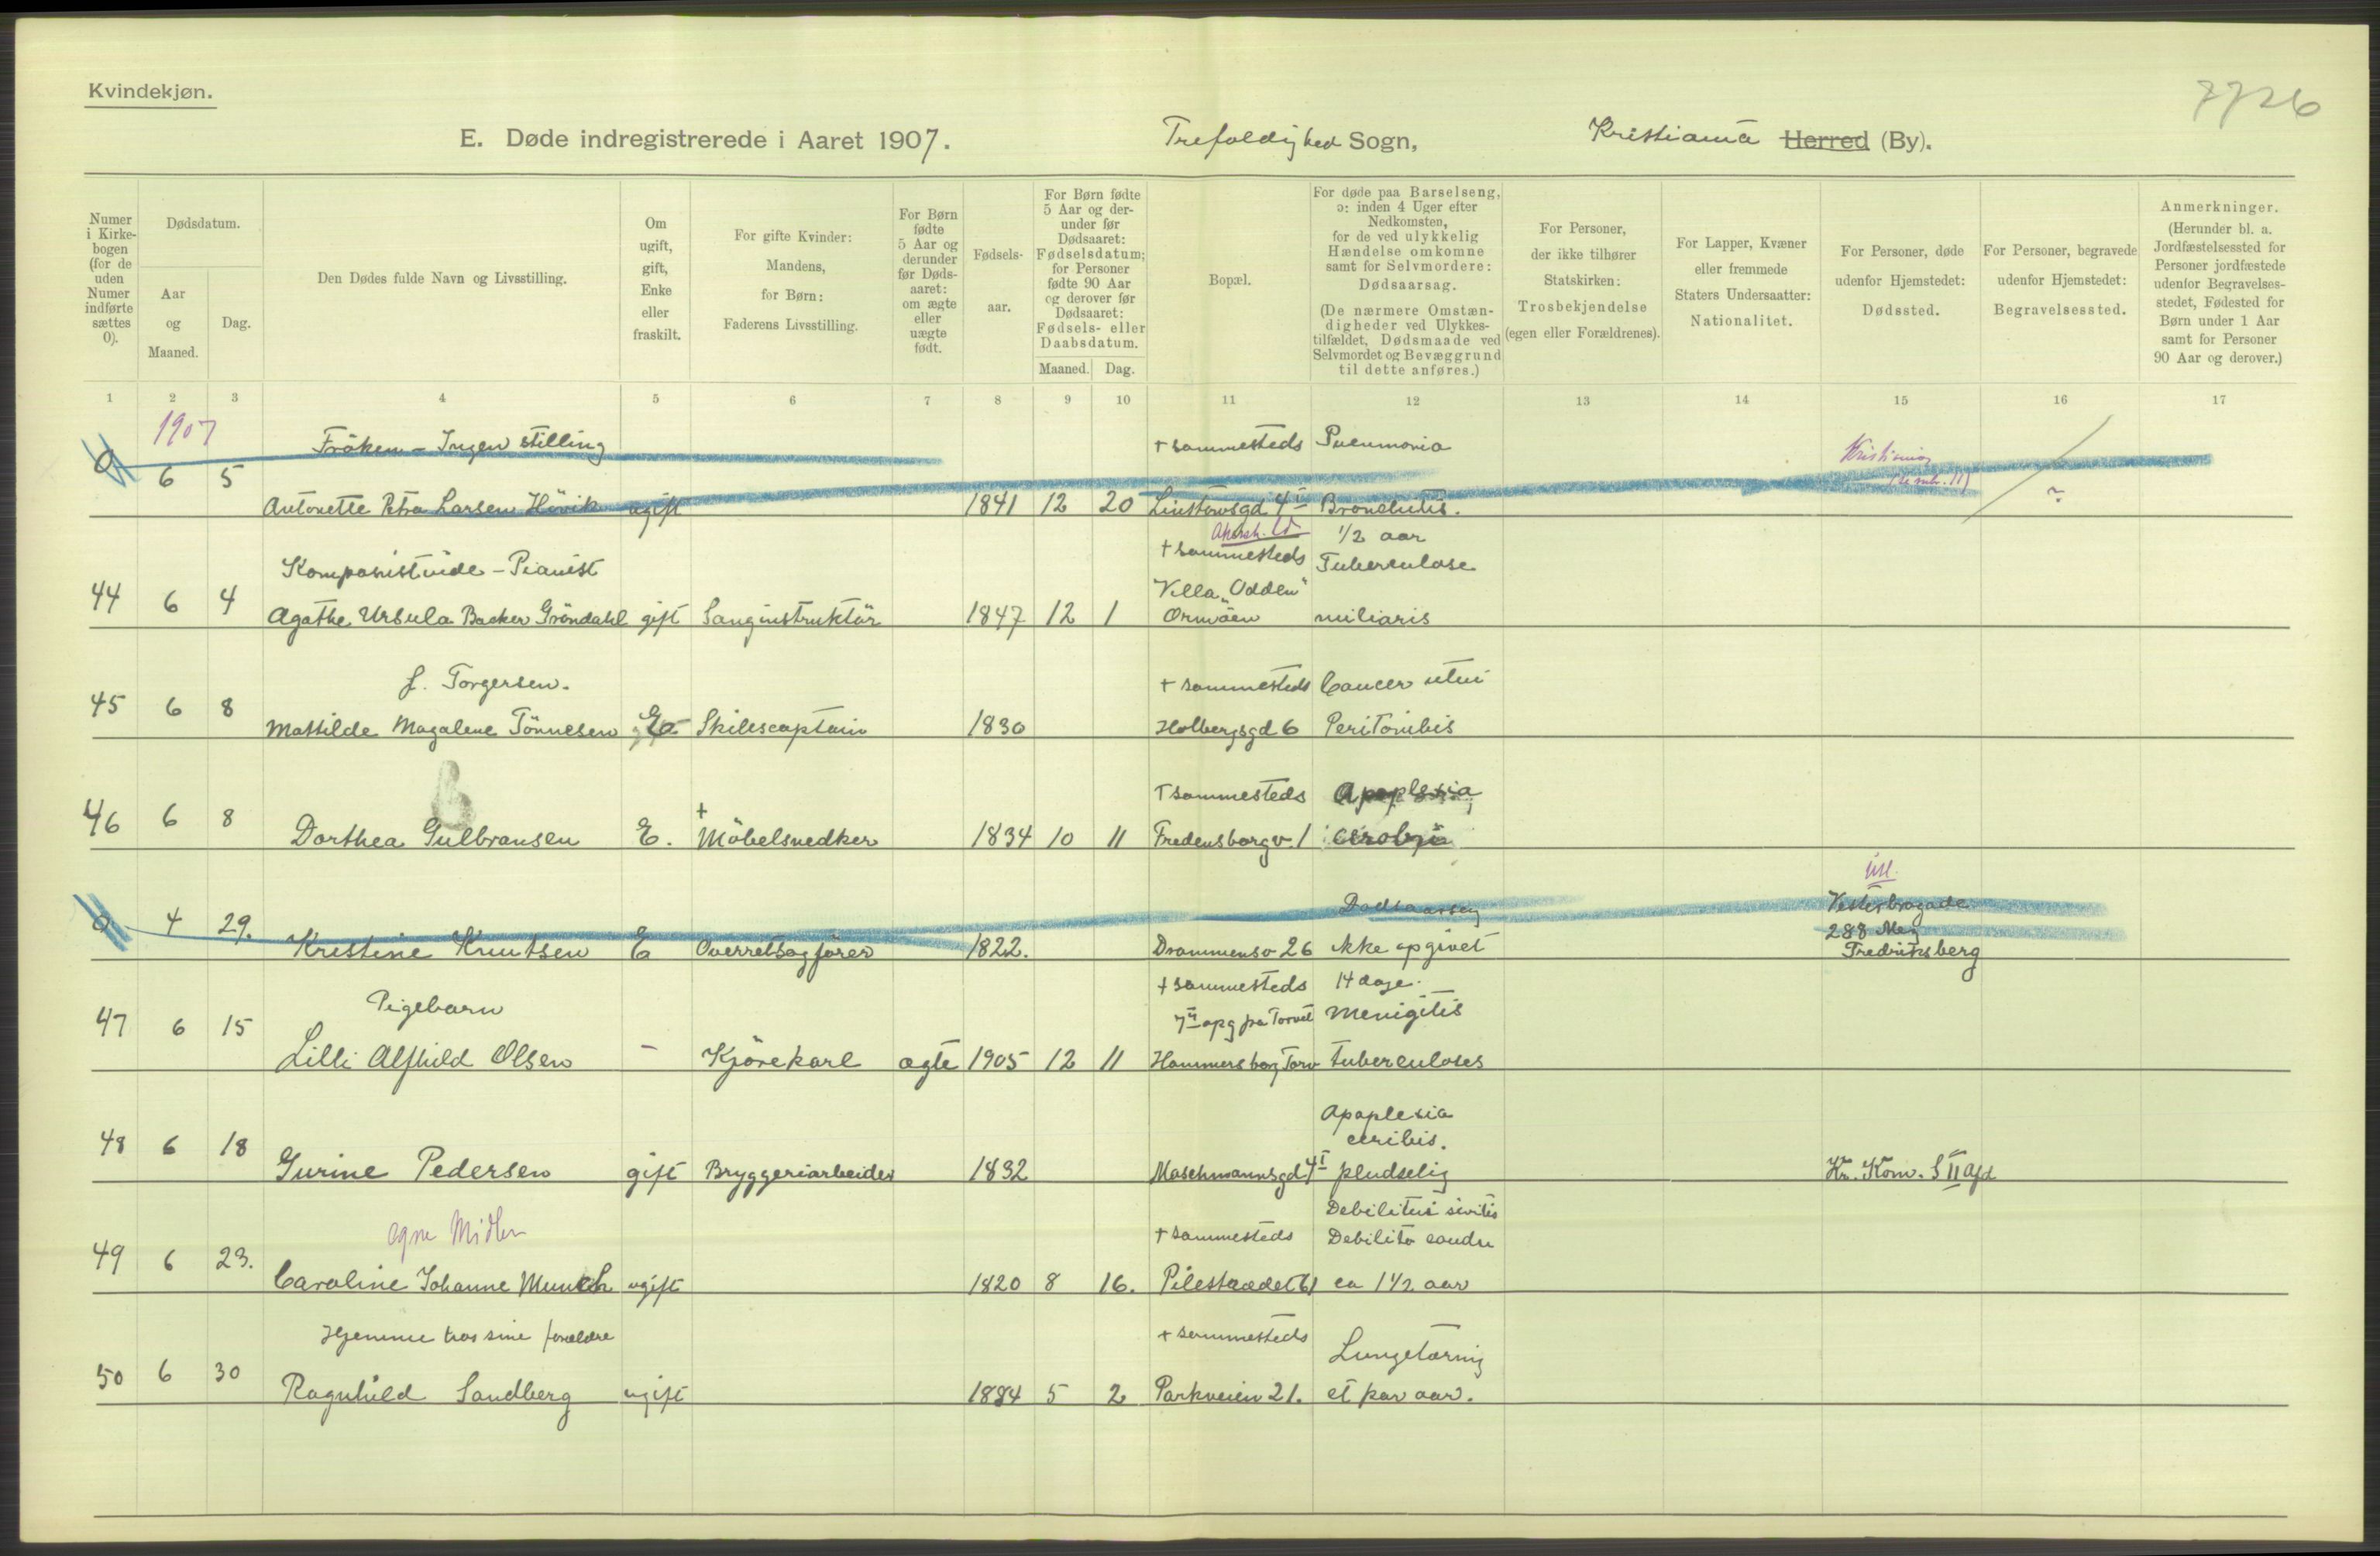 Kvindekjøn.
7726
E. Døde indregistrerede i Aaret 1907. Trefoldighed Sogn, Kristiania Herred (By).
Numer i Kirkebogen (for de uden Numer indførte sættes 0).
Dødsdatum.
Aar og Maaned.
Dag.
Den Dødes fulde Navn og Livsstilling.
Om ugift, gift, Enke eller fraskilt.
For gifte Kvinder: Mandens, for Børn: Faderens Livsstilling.
For Børn fødte 5 Aar og derunder før Dødsaaret: om ægte eller uægte født.
Fødselsaar.
For Børn fødte 5 Aar og derunder før Dødsaaret: Fødselsdatum; for Personer fødte 90 Aar og derover før Dødsaaret: Fødsels- eller Daabsdatum.
Maaned. Dag.
Bopæl.
For døde paa Barselseng, ɔ: inden 4 Uger efter Nedkomsten, for de ved ulykkelig Hændelse omkomne samt for Selvmordere: Dødsaarsag.
(De nærmere Omstændigheder ved Ulykkestilfældet, Dødsmaade ved Selvmordet og Bevæggrund til dette anføres.)
For Personer, der ikke tilhører Statskirken: Trosbekjendelse (egen eller Forældrenes).
For Lapper, Kvæner eller fremmede Staters Undersaatter: Nationalitet.
For Personer, døde udenfor Hjemstedet: Dødssted.
For Personer, begravede udenfor Hjemstedet: Begravelsessted.
Anmerkninger. (Herunder bl. a. Jordfæstelsessted for Personer jordfæstede udenfor Begravelsesstedet, Fødested for Børn under 1 Aar samt for Personer 90 Aar og derover.)
1 2 3 4 5 6 7 8 9 10 11 12 13 14 15 16 17
1907
Fröken - Ingen stilling + sammesteds Pneumonia Kristiania
0 6 5 Antonette Petra Larsen Hövik ugift 1841 12 20 Linstowsgd 4 I Bronchitis. ?
Akersh. 1/2 aar
Komponistinde - Pianist + sammesteds Tuberculose
Villa "Odden"
44 6 4 Agathe Ursula Backer Gröndahl gift Sanginstruktör 1847 12 1 Ormöen miliaris
f. Torgersen. + sammesteds Cancer uteri
45 6 8 Mathilde Magalene Tönnesen E Skibscaptain 1830 Holbergsgd 6 Peritonitis
B + sammesteds Apoplexia
46 6 8 Dorthea Gulbransen E. + Möbelsnedker 1834 10 11 Fredensborgv. 1
Dødsaarsag Vesterbrogade
0 4 29. Kristine Knutsen E Overretsagförer 1822. Drammensv 26 ikke opgivet 288 Fredriksberg
+ sammesteds 14 dage.
Pigebarn opg fra Torvet Menigitis
47 6 15 Lilli Alfhild Olsen - Kjörekarl ægte 1905 12 11 Hammersborg Torv tuberculoses
Apoplexia
ceribis.
48 6 18 Gurine Pedersen gift Bryggeriarbeider 1832 Maschmannsgd 4 I pludselig Kr. Kom. S II Afd
Egne Midler + sammesteds
49 6 23. Caroline Johanne Munch ugift 1820 8 16. Pilestrædet 61 ca 1 1/2 aar
Hjemme hos sine forældre + sammesteds Lungetæring
50 6 30 Ragnhild Sandberg ugift 1884 5 2 Parkveien 21. et par aar.